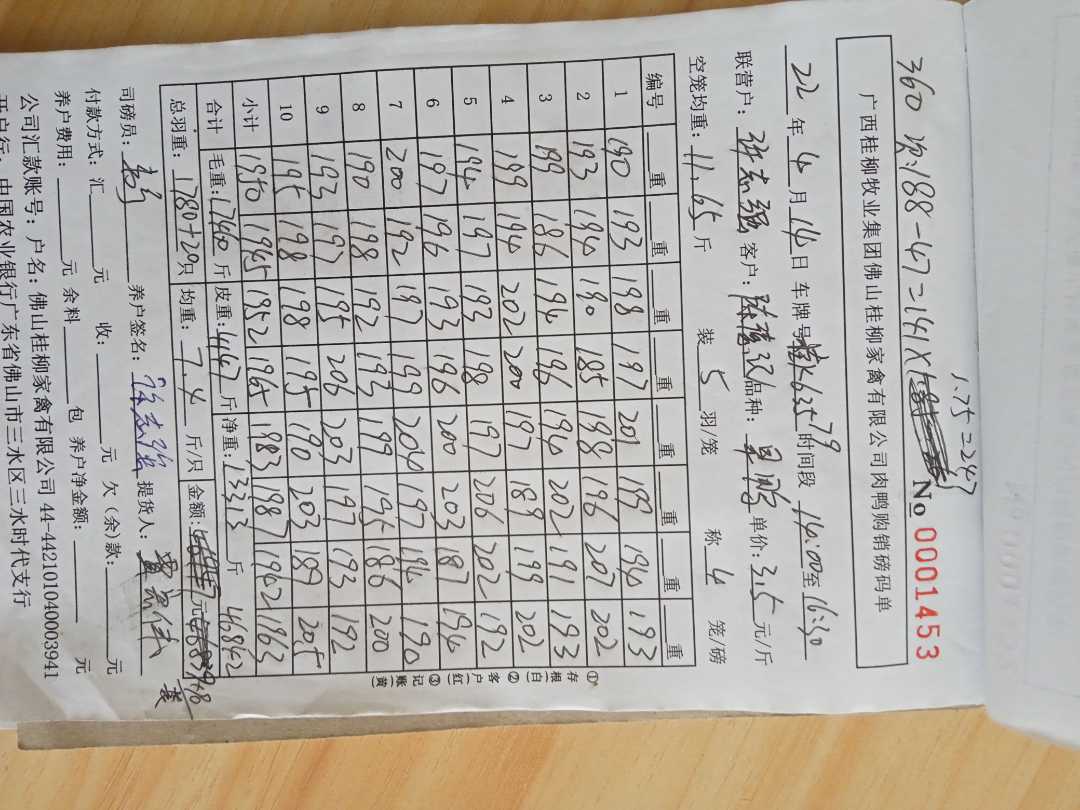 360 资:188-47=141X
1.75=247
No 0001453
广西桂柳牧业集团佛山桂柳家禽有限公司肉鸭购销磅码单
22 年 4 月 14 日 车牌号 时间段 14:00 至 16:30
联营户: 张志强 客户: 品种: 单价: 3.15 元/斤
空笼均重: 11.65 斤 装 5 羽/笼 称 4 笼/磅
编号 重 重 重 重 重 重 重 重
1 190 193 198 197 201 199 194 193
2 193 194 190 185 198 196 207 202
3 199 186 194 196 194 202 191 193
4 199 194 202 200 197 189 199 202
5 194 197 193 198 197 206 202 192
6 197 196 193 196 200 203 187 194
7 200 192 197 199 204 197 194 190
8 190 198 192 193 199 195 186 200
9 193 197 195 206 203 197 193 192
10 195 198 198 195 190 203 189 205
小计 1950 1945 1952 1965 1983 1987 1942 1963
合计 毛重: 斤 皮重: 447 斤 净重: 13313 斤 46842
总羽重: 1780+20 只 均重: 7.4 斤/只 金额: 元
①存根(白) ②客户(红) ③记账(黄)
司磅员: 养户签名: 张志强 提货人:
付款方式: 汇 元 收: 元 欠(余)款: 元
养户费用: 元 余料 包 养户净金额: 元
公司汇款账号: 户名: 佛山桂柳家禽有限公司 44-442101040003941
开户行: 中国农业银行广东省佛山市三水区三水时代支行